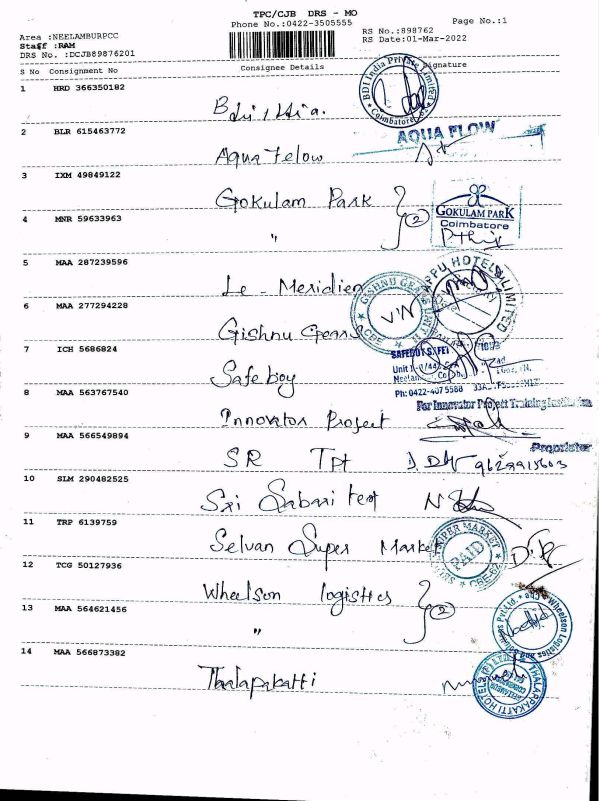 TPC/CJB DRS - MO
Phone No.:0422-3505555
Page No.:1
Area :NEELAMBURPCC
RS No.:898762
Staff :RAM
RS Date:01-Mar-2022
DRS No. :DCJB89876201
S No Consignment No Consignee Details Signature
1 HRD 366350182
BDI India Private Limited
Coimbatore
2 BLR 615463772
AQUA FLOW
Aqua Felow
3 IXM 49849122
Gokulam Park 2
GOKULAM PARK
Coimbatore
4 MNR 59633963
"
5 MAA 287239596
Le - Meridien
APPU HOTELS LIMITED
6 MAA 277294228
Gishnu Gears
GISHNU GEARS
CBE
7 ICH 5686824
Safe boy
Ph: 0422-4075588
8 MAA 563767540
Innovator Project
For Innovator Project Training Institution
Proprietor
9 MAA 566549894
SR Tpt
10 SLM 290482525
Sri Sabari test
11 TRP 6139759
Selvan Super Market
SUPER MARKET
PAID
CBE-62
12 TCG 50127936
Wheelson logistics 2
13 MAA 564621456
"
Wheelson Logistics
14 MAA 566873382
Thalapakatti
THALAPPAKATTI HOTELS (P) LTD